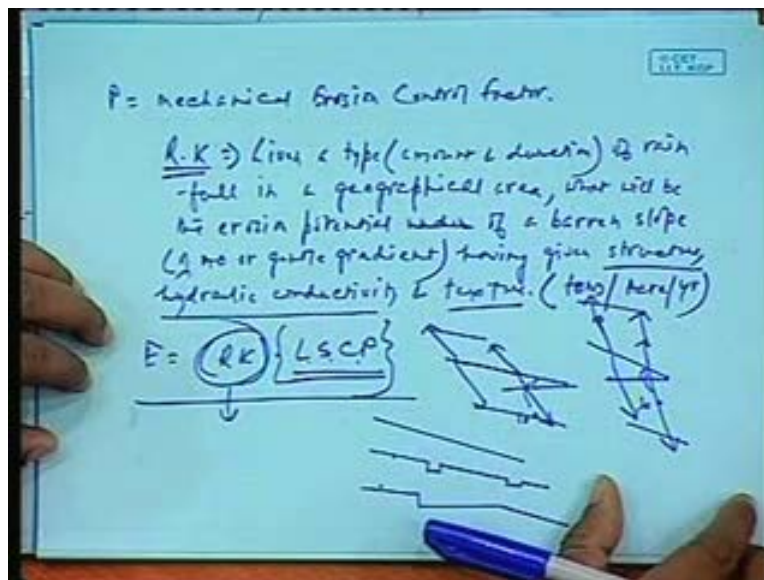 © CET
I.I.T. KGP
P = mechanical Erosion Control factor.
R.K ⇒ Given a type (amount & duration) of rain
-fall in a geographical area, what will be
the erosion potential of a barren slope
(of me or gentle gradient) having given structure,
hydraulic conductivity & texture. (tons/Acre/yr)
E = (RK) {L.S.C.P}